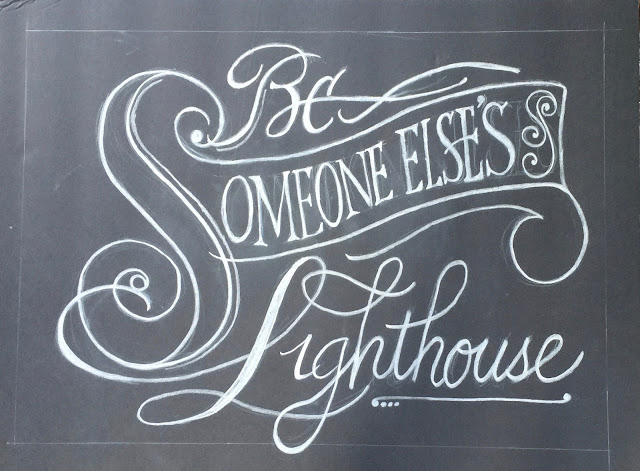 Be
SOMEONE ELSE'S
Lighthouse